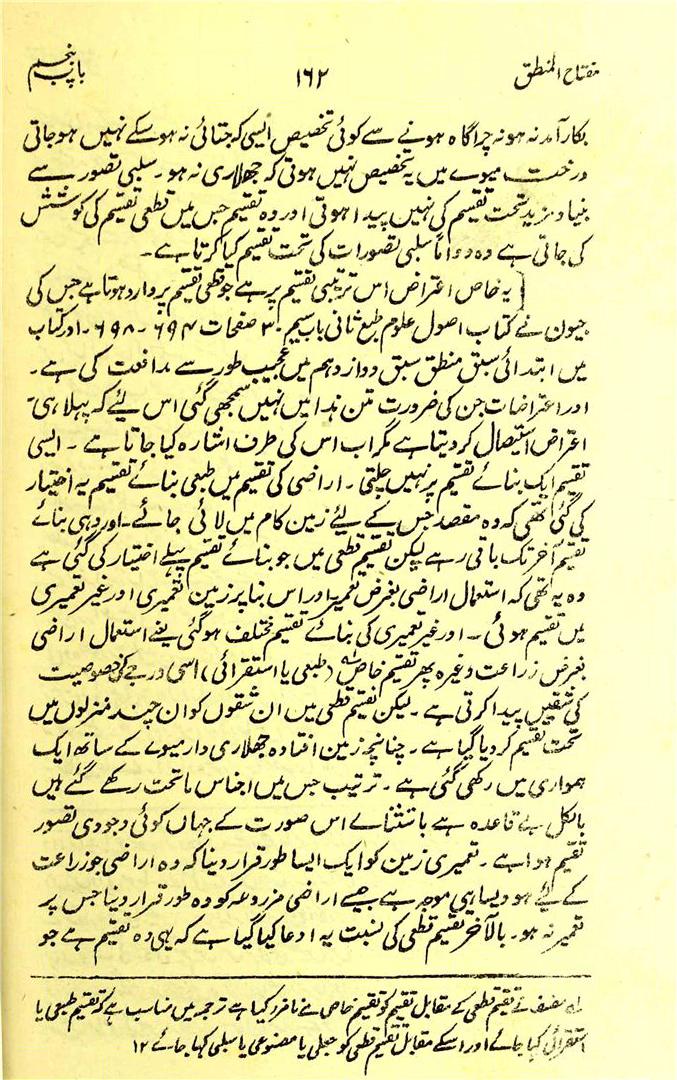 مفتاح المنطق ۱۶۲ باب پنجم
بکار آمد نہ ہو نہ چراگاہ ہونے سے کوئی تخصیص ایسی کہ جتائی نہ ہو سکے نہیں ہو جاتی
درخت میوے میں یہ تخصیص نہیں ہوتی کہ جھلاری نہ ہو۔ سلبی تصور سے
بنیاد مزید تحت تقسیم کی نہیں پیدا ہوتی اور وہ تقسیم جس میں قطعی تقسیم کی کوشش
کی جاتی ہے وہ دواماً سلبی تصورات کی تحت تقسیم کیا کرتا ہے۔
[یہ خاص اعتراض اس ترتیبی تقسیم پر ہے جو قطعی تقسیم پر وارد ہوتا ہے جس کی
جیون نے کتاب اصول علوم طبع ثانی باب سیم۔ ۳ صفحات ۶۹۴ - ۶۹۸۔ اور کتاب
میں ابتدائی سبق منطق سبق دوازدہم میں عجیب طور سے مدافعت کی ہے۔
اور اعتراضات جن کی ضرورت متن ہذا میں نہیں سمجھی گئی اس لئے کہ پہلا ہی
اعتراض استیصال کر دیتا ہے مگر اب اس کی طرف اشارہ کیا جاتا ہے۔ ایسی
تقسیم ایک بنائے تقسیم پر نہیں چلتی۔ اراضی کی تقسیم میں طبعی بنائے تقسیم یہ اختیار
کی گئی تھی کہ وہ مقصد جس کے لئے زمین کام میں لائی جائے۔ اور وہی بنائے
تقسیم آخر تک باقی رہے لیکن تقسیم قطعی میں جو بنائے تقسیم پہلے اختیار کی گئی ہے
وہ یہ تھی کہ استعمال اراضی بغرض تعمیر۔ اور اس بنا پر زمین تعمیری اور غیر تعمیری
میں تقسیم ہوئی۔ اور غیر تعمیری کی بنائے تقسیم مختلف ہو گئی یعنے استعمال اراضی
بغرض زراعت وغیرہ پھر تقسیم خاص لہ (طبعی یا استقرائی) اسی درجے کی خصوصیت
کی شقیں پیدا کرتی ہے۔ لیکن تقسیم قطعی میں ان شقوں کو ان چند منزلوں میں
تحت تقسیم کر دیا گیا ہے۔ چنانچہ زمین افتادہ جھلاری دار میوے کے ساتھ ایک
ہمواری میں رکھی گئی ہے۔ ترتیب جس میں اجناس ماتحت رکھے گئے ہیں
بالکل بے قاعدہ ہے باستثنائے اس صورت کے جہاں کوئی وجودی تصور
تقسیم ہوا ہے۔ تعمیری زمین کو ایک ایسا طور قرار دینا کہ وہ اراضی جو زراعت
کے لئے ہو ویسا ہی موجہ ہے جیسے اراضی مزروعہ کو وہ طور قرار دینا جس پر
تعمیر نہ ہو۔ بالآخر تقسیم قطعی کی نسبت یہ ادعا کیا گیا ہے کہ یہی وہ تقسیم ہے جو
لہ مصنف نے تقسیم قطعی کے مقابل تقسیم کو تقسیم خاص نے نامزد کیا ہے ترجمہ میں مناسب ہے کہ تقسیم طبعی یا
استقرائی کہا جائے اور اسکے مقابل تقسیم قطعی کو جعلی یا مصنوعی یا سلبی کہا جائے ۱۲